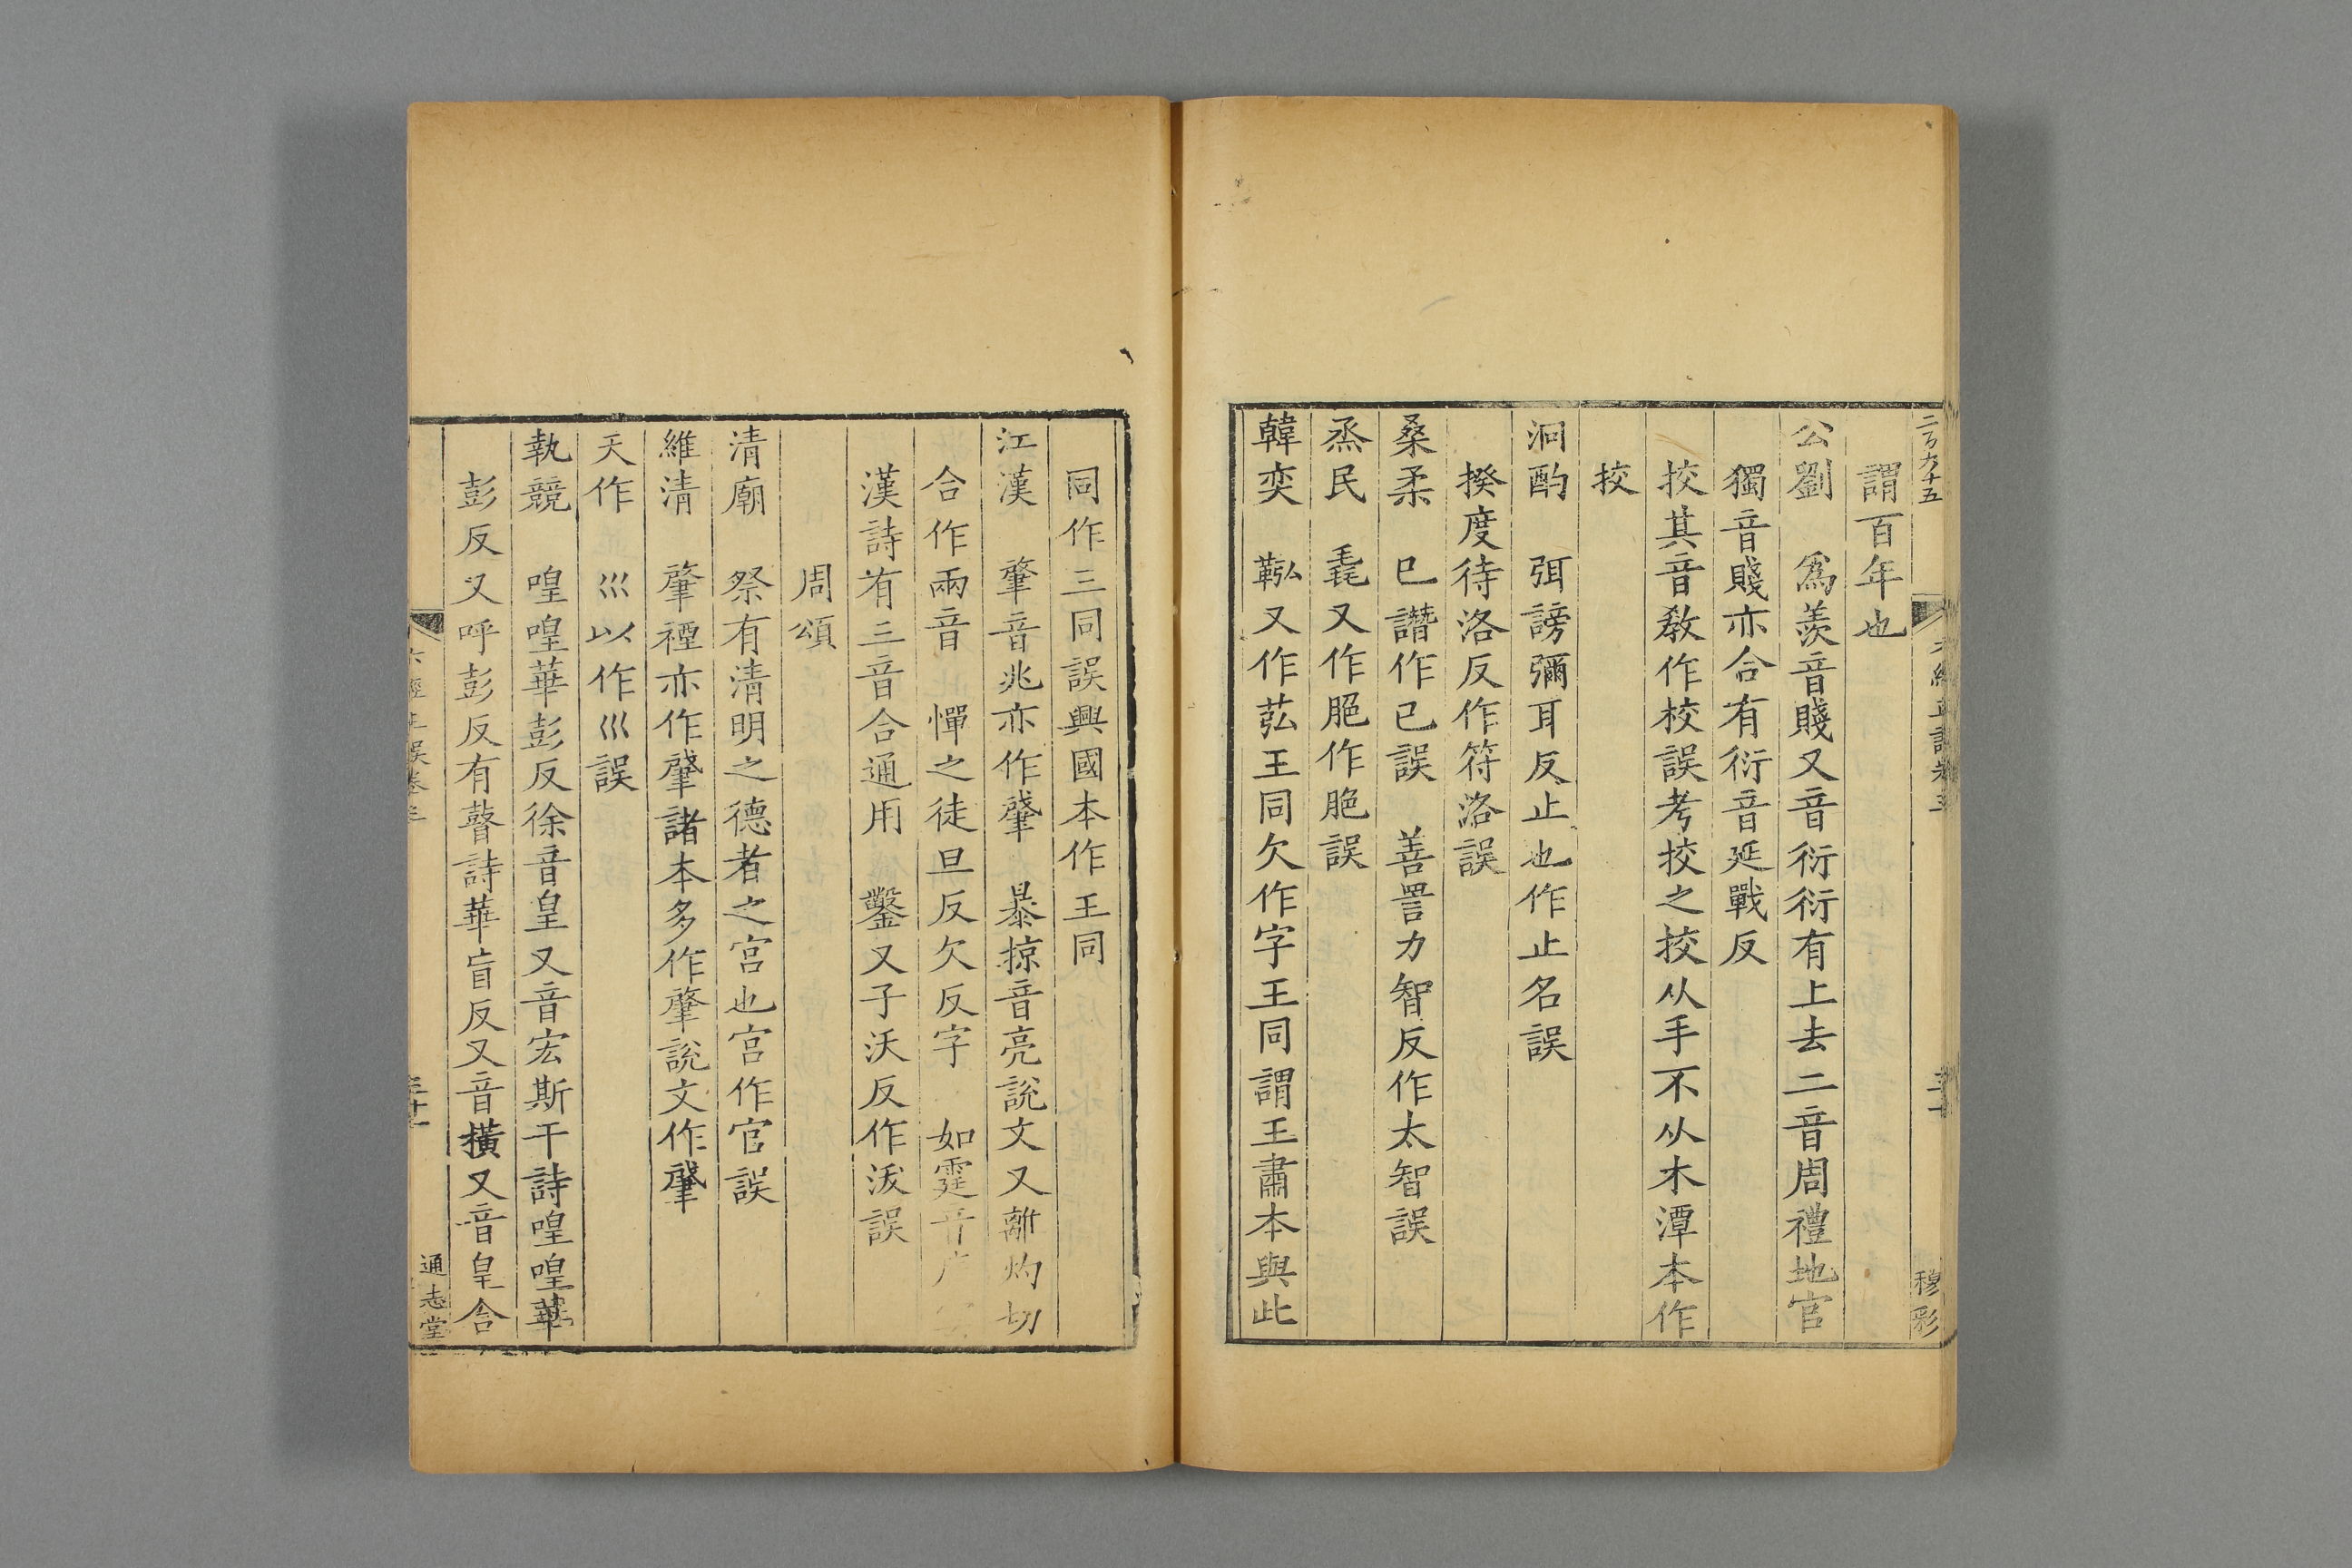 二百六十五
六經正誤卷三
三十
穆彩
謂百年也
公劉　爲羨音賤又音衍衍有上去二音周禮地官
獨音賤亦合有衍音延戰反
挍其音敎作校誤考挍之挍从手不从木潭本作
挍
泂酌　弭謗彌耳反止也作止名誤
揆度待洛反作符洛誤
桑柔　已譖作巳誤　善詈力智反作太智誤
烝民　毳又作脃脃作脆誤
韓奕　鞃又作苰王同欠作字王同謂王肅本與此
同作三同誤興國本作王同
江漢　肇音兆亦作肈　暴掠音亮說文又離灼切
合作兩音　憚之徒旦反欠反字　如霆
漢詩有三音合通用　鑿又子沃反作泼誤
周頌
清廟　祭有清明之德者之宮也宮作官誤
維清　肇禋亦作肈諸本多作肇說文作肈
天作　巛以作巛誤
執競　喤喤華彭反徐音皇又音宏斯干詩喤喤華
彭反又呼彭反有瞽詩華盲反又音橫又音皇合
六經正誤卷三
三十一
通志堂